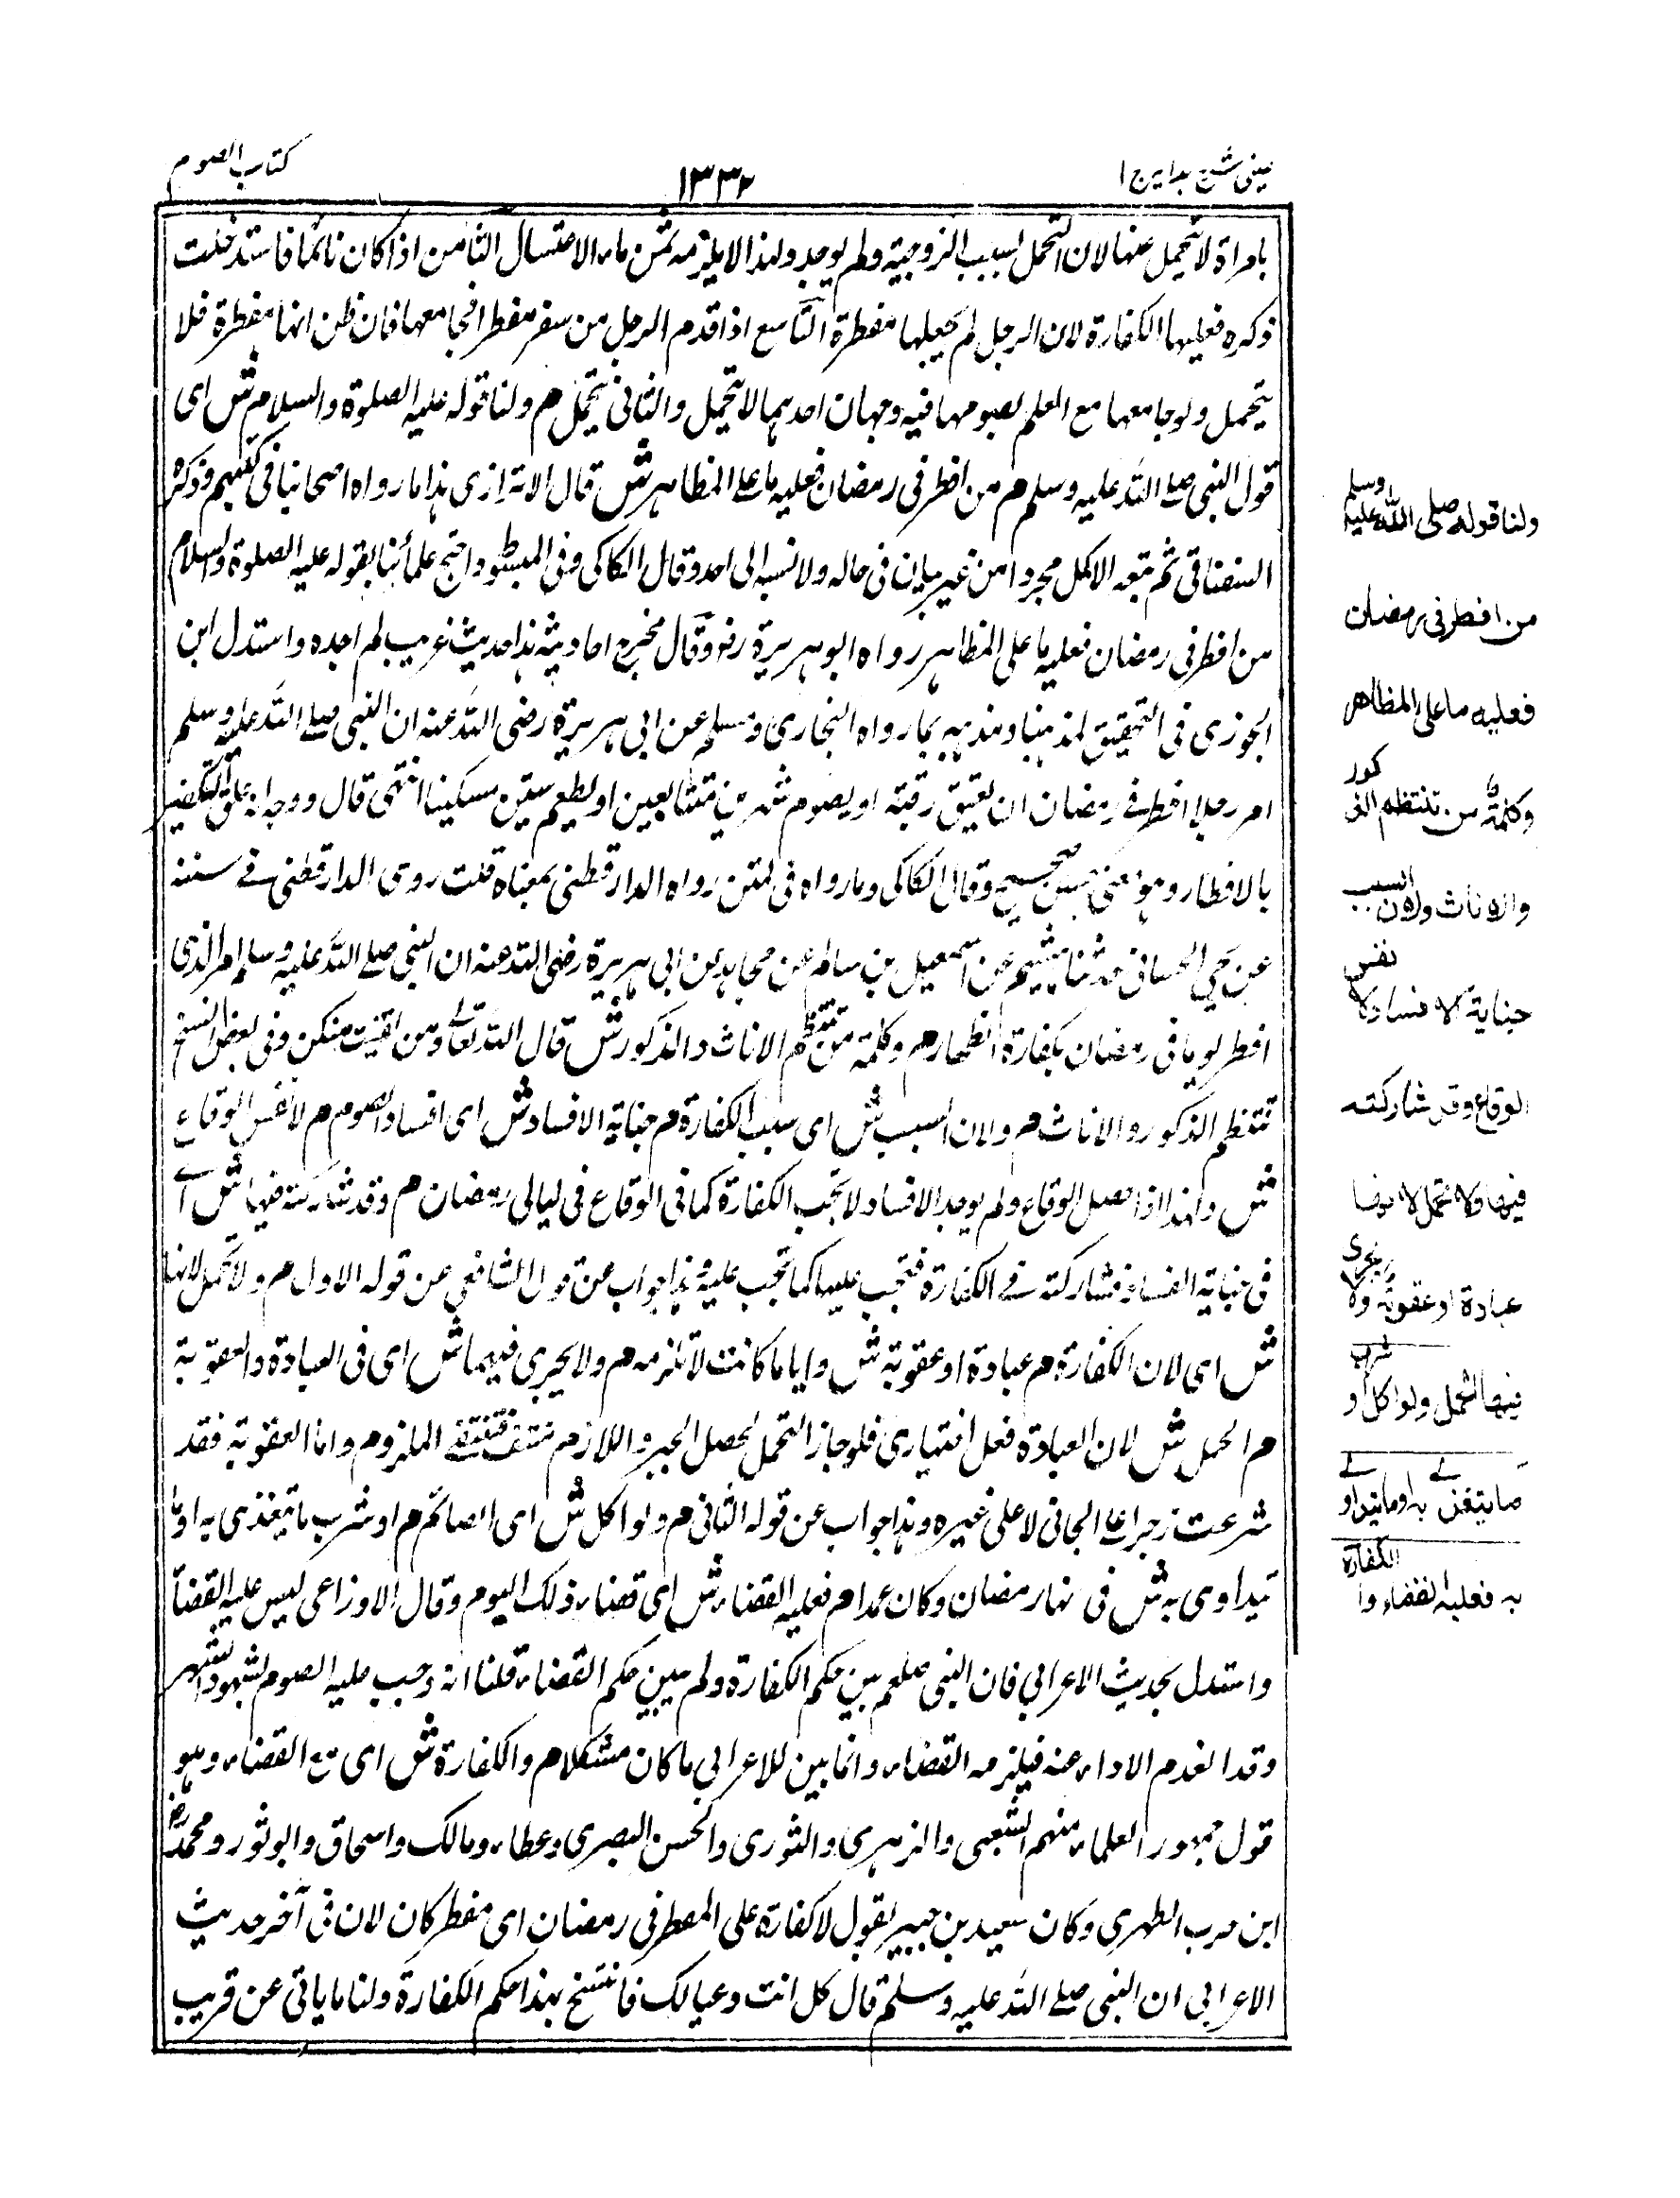 عینی شرح ہدایہ ج ۱
۱۳۳۲
کتاب الصوم
بامراة لا تحمل عنها لان التحمل بسبب الزوجية ولم يوجد ولهذا لا يلزمه ثمن ماء الاغتسال الثامن اذا كان نائما فاستدخلت
ذكره فعليها الكفارة لان الرجل لم يجعلها مفطرة التاسع اذا قدم الرجل من سفر مفطرا فجامعها فان ظن انها مفطرة فلا
يتحمل ولو جامعها مع العلم بصومها فيه وجهان احدهما لا يتحمل والثانى يتحمل م ولنا قوله عليه الصلوة والسلام ش اى
قول النبى صلے الله عليه وسلم م من افطر فى رمضان فعليه ما على المظاهر ش قال الاترازى هذا ما رواه اصحابنا فى كتبهم وذكره
السغناقى ثم تبعه الاكمل مجردا من غير بيان فى حاله ولا نسبه الى احد وقال الكاكى وفى المبسوط واحتج علمائنا بقوله عليه الصلوة والسلام
من افطر فى رمضان فعليه ما على المظاهر رواه ابو هريرة رضہ وقال مخرج احاديثه هذا حديث غريب لم اجده واستدل ابن
الجوزى فى التحقيق لمذهبنا ومذهبه بما رواه البخارى ومسلم عن ابى هريرة رضى الله عنه ان النبى صلے الله عليه وسلم
امر رجلا افطر فے رمضان ان يعتق رقبة او يصوم شهرين متتابعين او يطعم ستين مسكينا انتهى قال ووجه انه علق التكفير
بالافطار وهو معنى صحيح وقال الكاكى وما رواه فى المتن رواه الدارقطنى بمعناه قلت روى الدارقطنى فے سننه
عن يحيى الحمانى حدثنا هشيم عن اسمعيل بن سالم عن مجاهد عن ابى هريرة رضى الله عنه ان النبى صلے الله عليه وسلم امر الذى
افطر يوما فى رمضان بكفارة الظهار م وكلمة من تنتظم الاناث والذكور ش قال الله تعالے ومن يقنت منكن وفى بعض النسخ
تنتظم الذكور والاناث م ولان السبب ش اى سبب الكفارة م جناية الافساد ش اى افساد الصوم م لا نفس الوقاع
ش ولهذا اذا حصل الوقاع ولم يوجد الافساد لا تجب الكفارة كما فى الوقاع فى ليالى رمضان م وقد شاركته فيها ش اے
فى جناية الفساد فشاركته فے الكفارة فتجب عليها كما تجب عليه وهذا جواب عن قول الشافعى عن قوله الاول م ولا تحمل لانها
ش اى لان الكفارة م عبادة او عقوبة ش وايا ما كانت لا تلزمه م ولا يجرى فيهما ش اى فى العبادة والعقوبة
م الحمل ش لان العبادة فعل اختيارى فلو جاز التحمل لحصل الجبر واللازم منتف فينتفے الملزوم واما العقوبة فقد
شرعت زجرا على الجانى لا على غيره وهذا جواب عن قوله الثانى م ولو اكل ش اى الصائم م او شرب ما يتغذى به او ما
يتداوى به ش فى نهار رمضان وكان عمدا م فعليه القضاء ش اى قضاء ذلك اليوم وقال الاوزاعى ليس عليه القضاء
واستدل بحديث الاعرابى فان النبى صلعم بين حكم الكفارة ولم يبين حكم القضاء قلنا انه وجب عليه الصوم بشهود الشهر
وقد انعدم الاداء عنه فيلزمه القضاء وانما بين للاعرابى ما كان مشكلا م والكفارة ش اى مع القضاء وهو
قول جمهور العلماء منهم الشعبى والزهرى والثورى والحسن البصرى وعطاء ومالك واسحاق وابو ثور ومحمد
ابن جرب الطبرى وكان سعيد بن جبير يقول لا كفارة على المفطر فى رمضان اى مفطر كان لان فى آخر حديث
الاعرابى ان النبى صلے الله عليه وسلم قال كل انت وعيالك فانتسخ بهذا حكم الكفارة ولنا ما ياتى عن قريب
ولنا قوله صلى الله عليه وسلم
من افطر فى رمضان
فعليه ما على المظاهر
وكلمة من تنتظم الذكور
والاناث ولان السبب
جناية الافساد لا نفس
الوقاع وقد شاركته
فيها ولا تحمل لانها
عبادة او عقوبة ولا يجرى
فيهما التحمل ولو اكل او شرب
ما يتغذے به او ما يتداوے
به فعليه القضاء والكفارة